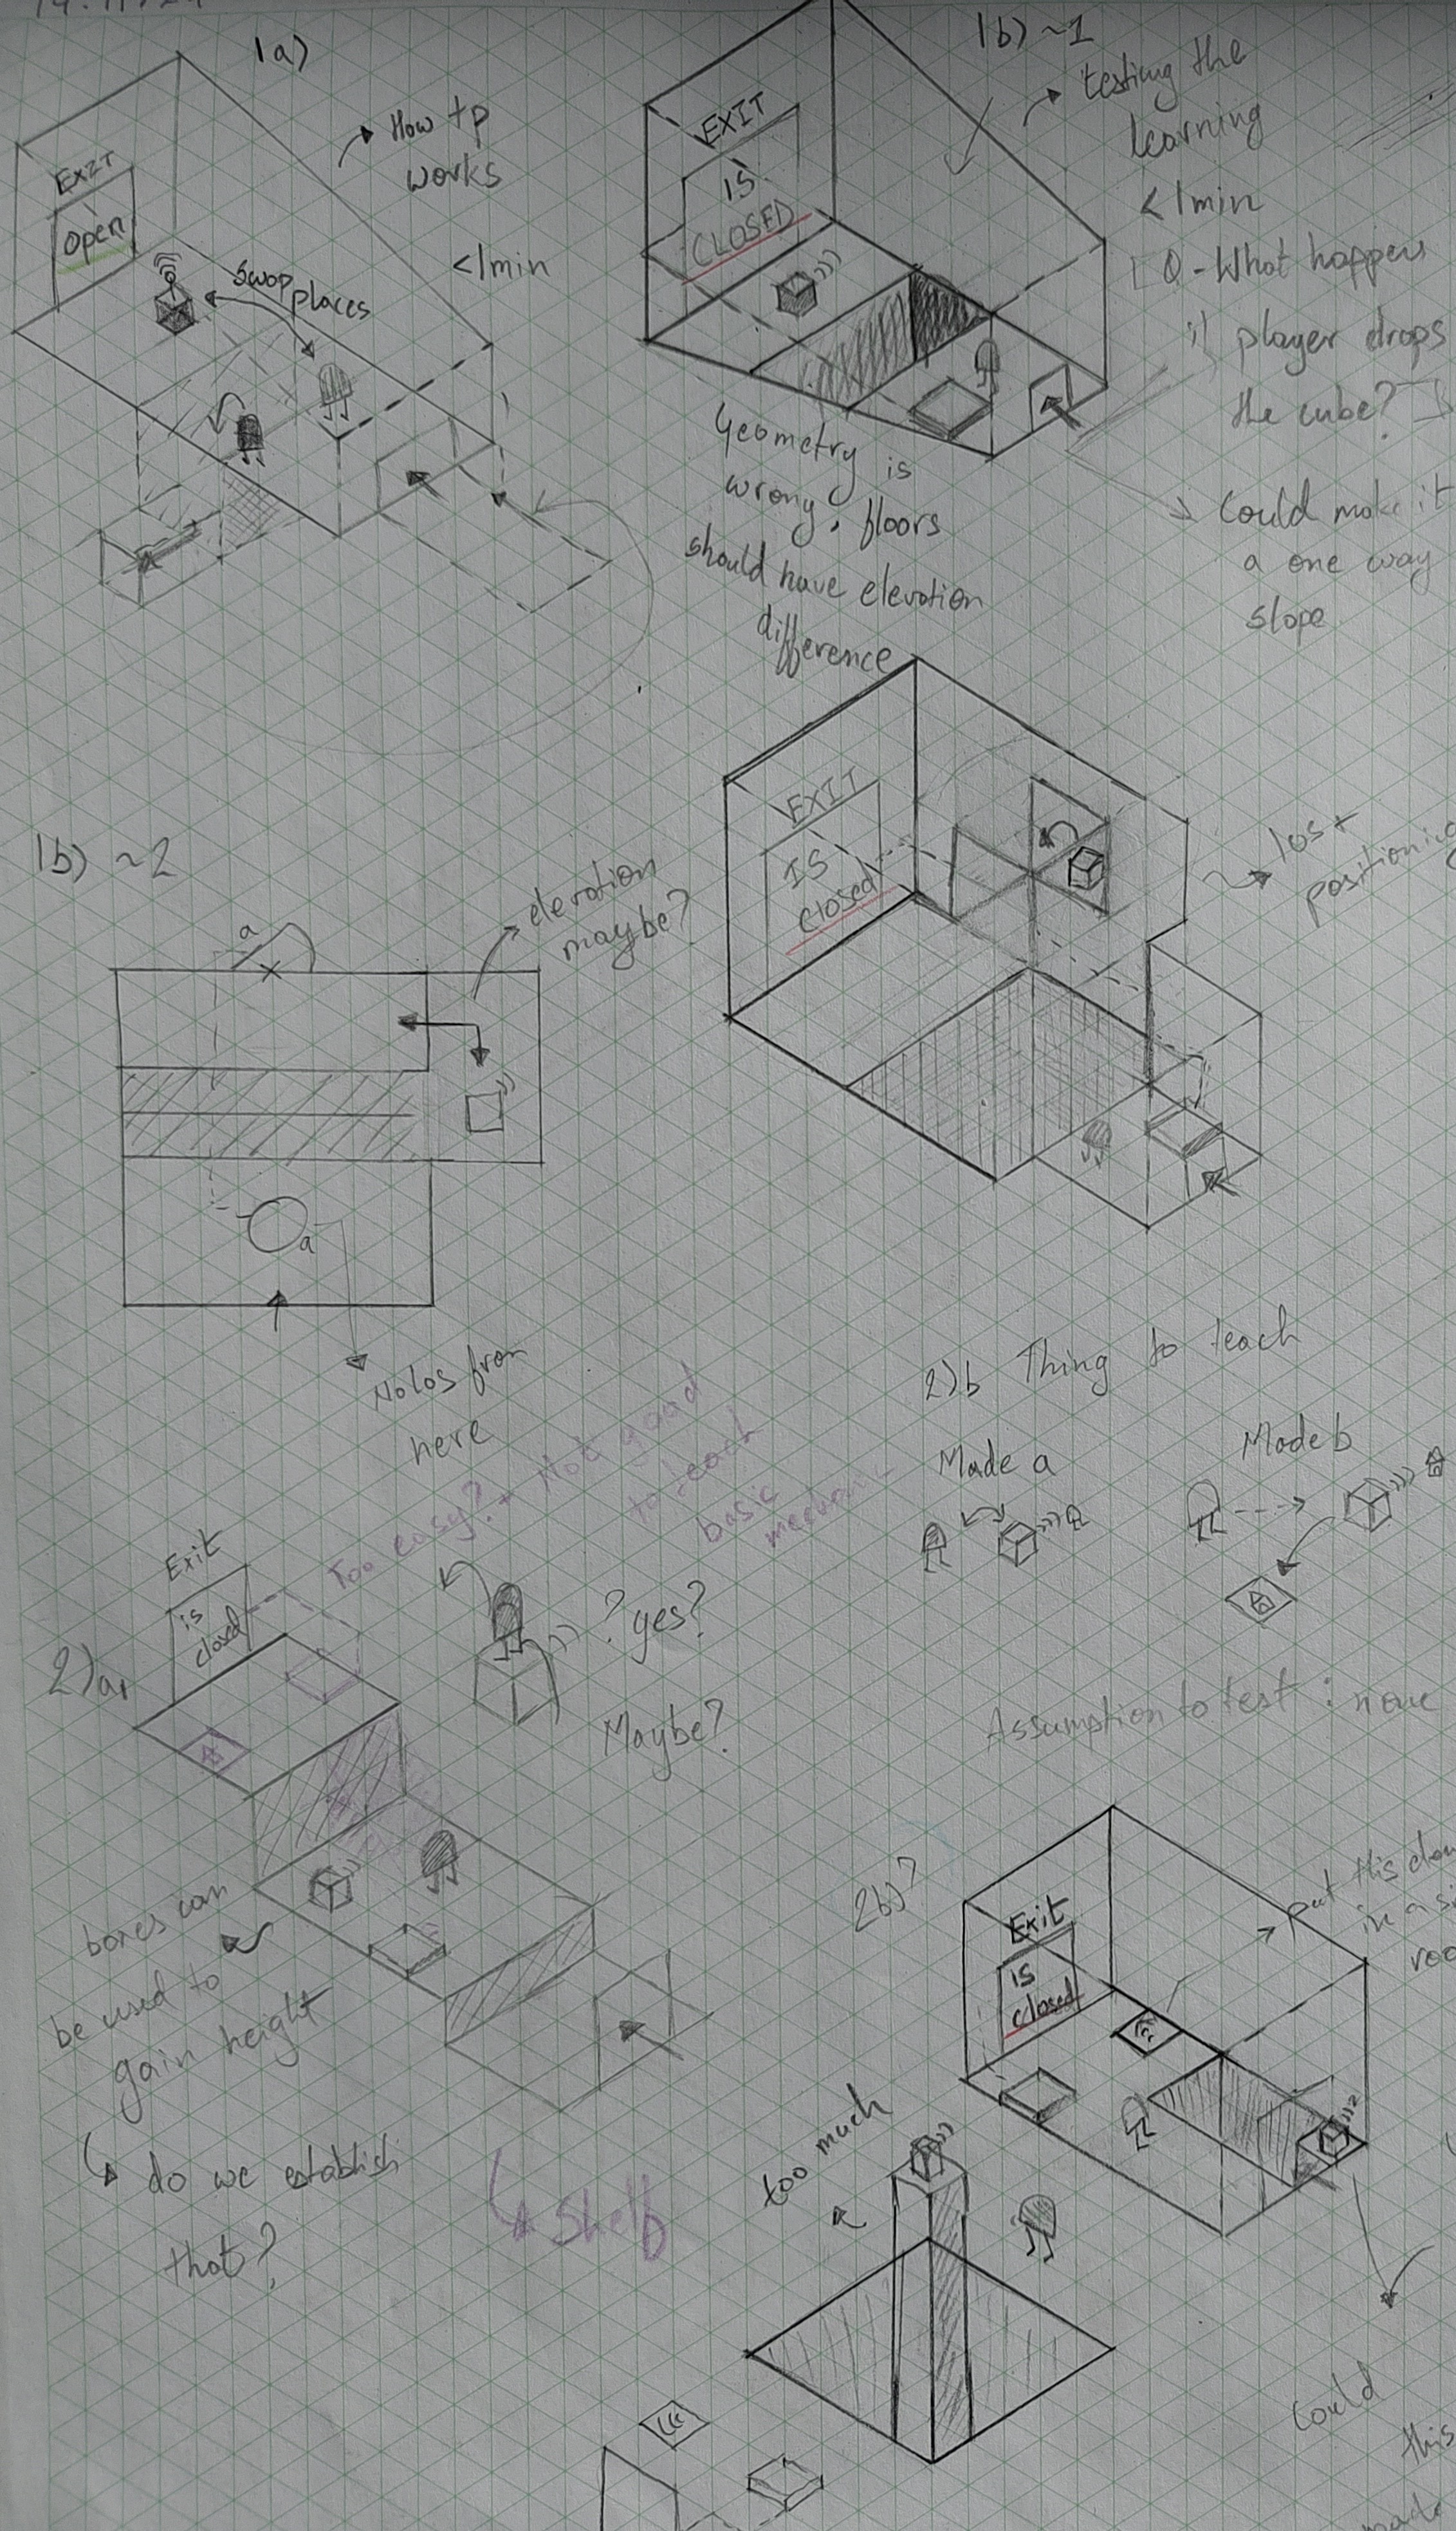 1a)
How tp
works
<1min
EXIT
open
Swap
places
1b) ~1
testing the
learning
<1min
Q - What happens
if player drops
the cube?
Could make it
a one way
slope
EXIT
IS
CLOSED
Geometry is
wrong. floors
should have elevation
difference
1b) ~2
a
elevation
maybe?
a
No los from
here
EXIT
IS
closed
los +
positioning
2)b Thing to teach
Mode a
Mode b
Assumption to test : none
Too easy? + Not good
to teach
basic
mechanic
2)a,
Exit
is
closed
? yes?
Maybe?
boxes can
be used to
gain height
do we establish
that?
Shelb
2b)?
Exit
is
closed
put this
in a
too much
Could
this